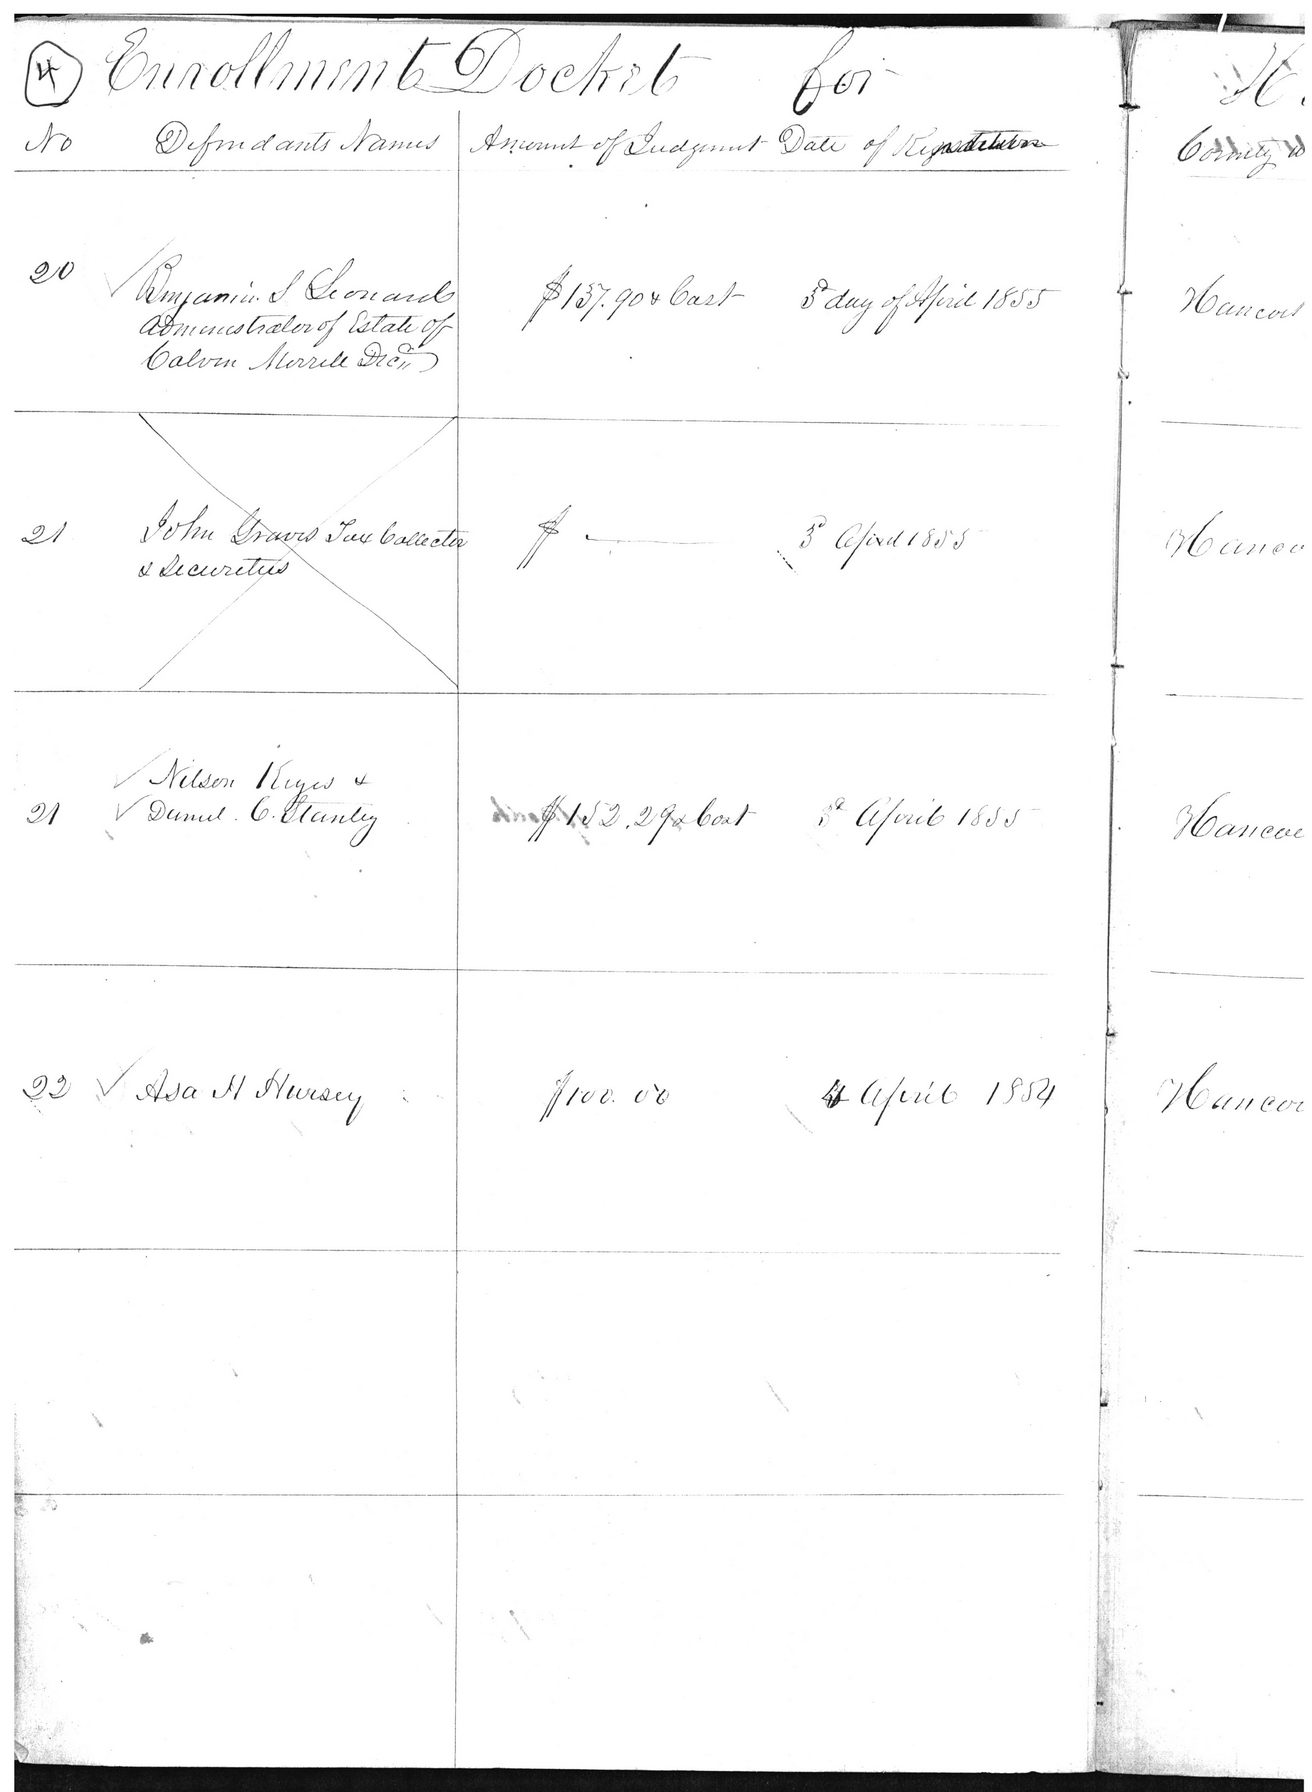 4 Enrollment Docket for H
No Defendants Names Amount of Judgment Date of County
20 Benjamin S Leonard $137.90 & Cost 3d day of April 1855 Hancock
Administrator of Estate of
Calvin Merrill Decd
21 John Graves Tax Collector $ — 3d April 1855 Hanco
& Securities
Nelson Keyes &
21 Daniel C. Stanley $152.29 & Cost 3d April 1855 Hancoc
22 Asa H Hursey $100.00 4 April 1854 Hancoc